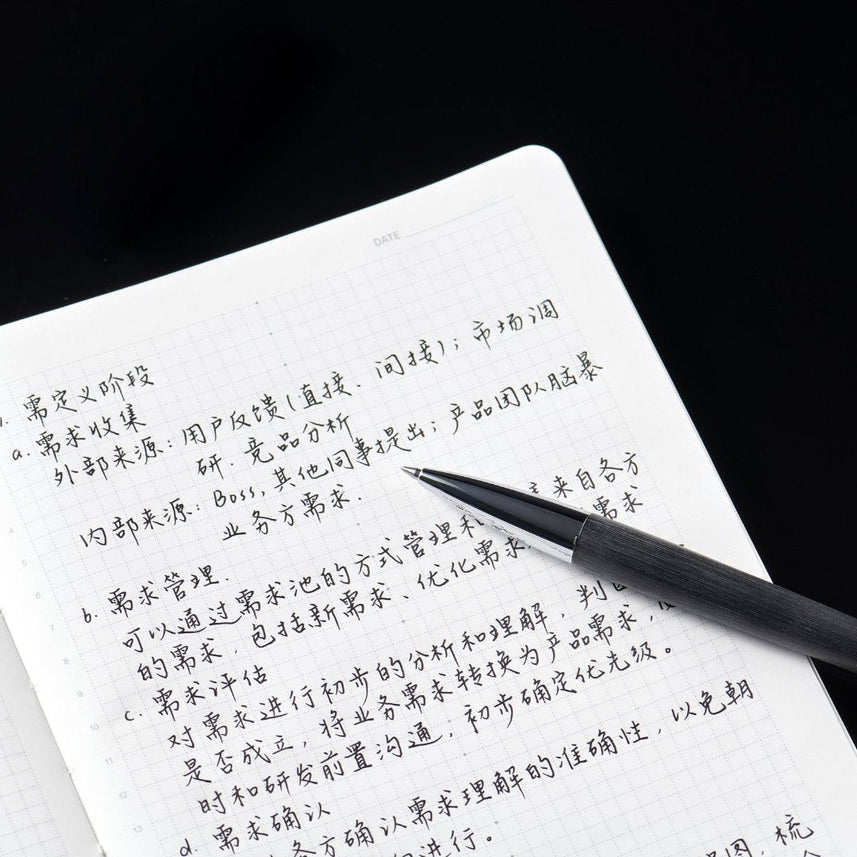 DATE
需定义阶段
a. 需求收集
外部来源：用户反馈(直接、间接)；市场调
研．竞品分析
内部来源：Boss, 其他同事提出；产品团队脑暴
业务方需求．
b. 需求管理．
可以通过需求池的方式管理和 来自各方
的需求，包括新需求、优化需求 需求
c. 需求评估
对需求进行初步的分析和理解，判
是否成立，将业务需求转换为产品需求，
时和研发前置沟通，初步确定优先级。
d. 需求确认
各方确认需求理解的准确性，以免朝
进行。
图，梳
4
5
6
7
8
9
10
11
12
13